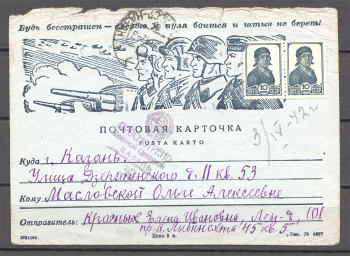 Будь бесстрашен — и пуля боится и штык не берет!
10
10
ПОЧТОВАЯ КАРТОЧКА
POŜTA KARTO
3/IV-42г
Куда г. Казань.
Улица Дзержинского д. 11 кв. 53
Кому Масловской Ольге Алексеевне
Отправитель: Красных Елена Ивановна, Лен-д, 101
пр. К. Либкнехта 45 кв. 5
Цена 5 к.